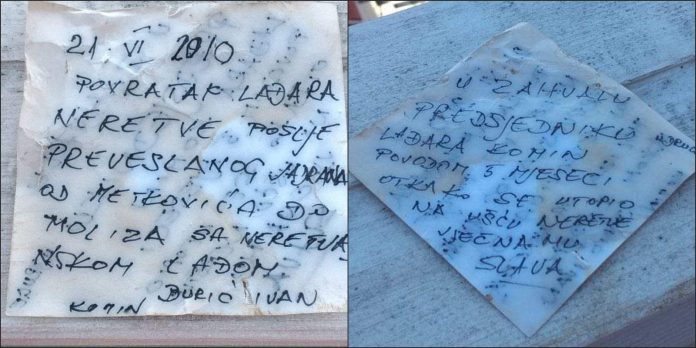 21 VI 2010
POVRATAK LAĐARA
NERETVE POSLIJE
PREVESLANOG JADRANA
OD METKOVIĆA DO
MOLIZA SA NERETVA
NSKOM LAĐOM
KOMIN ĐURIĆ IVAN
U ZAHVALU
PREDSJEDNIKU
LAĐARA KOMIN
POVODOM 3 MJESECI
OTKAKO SE UTOPIO
NA UŠĆU NERETVE
VJEČNA MU
SLAVA